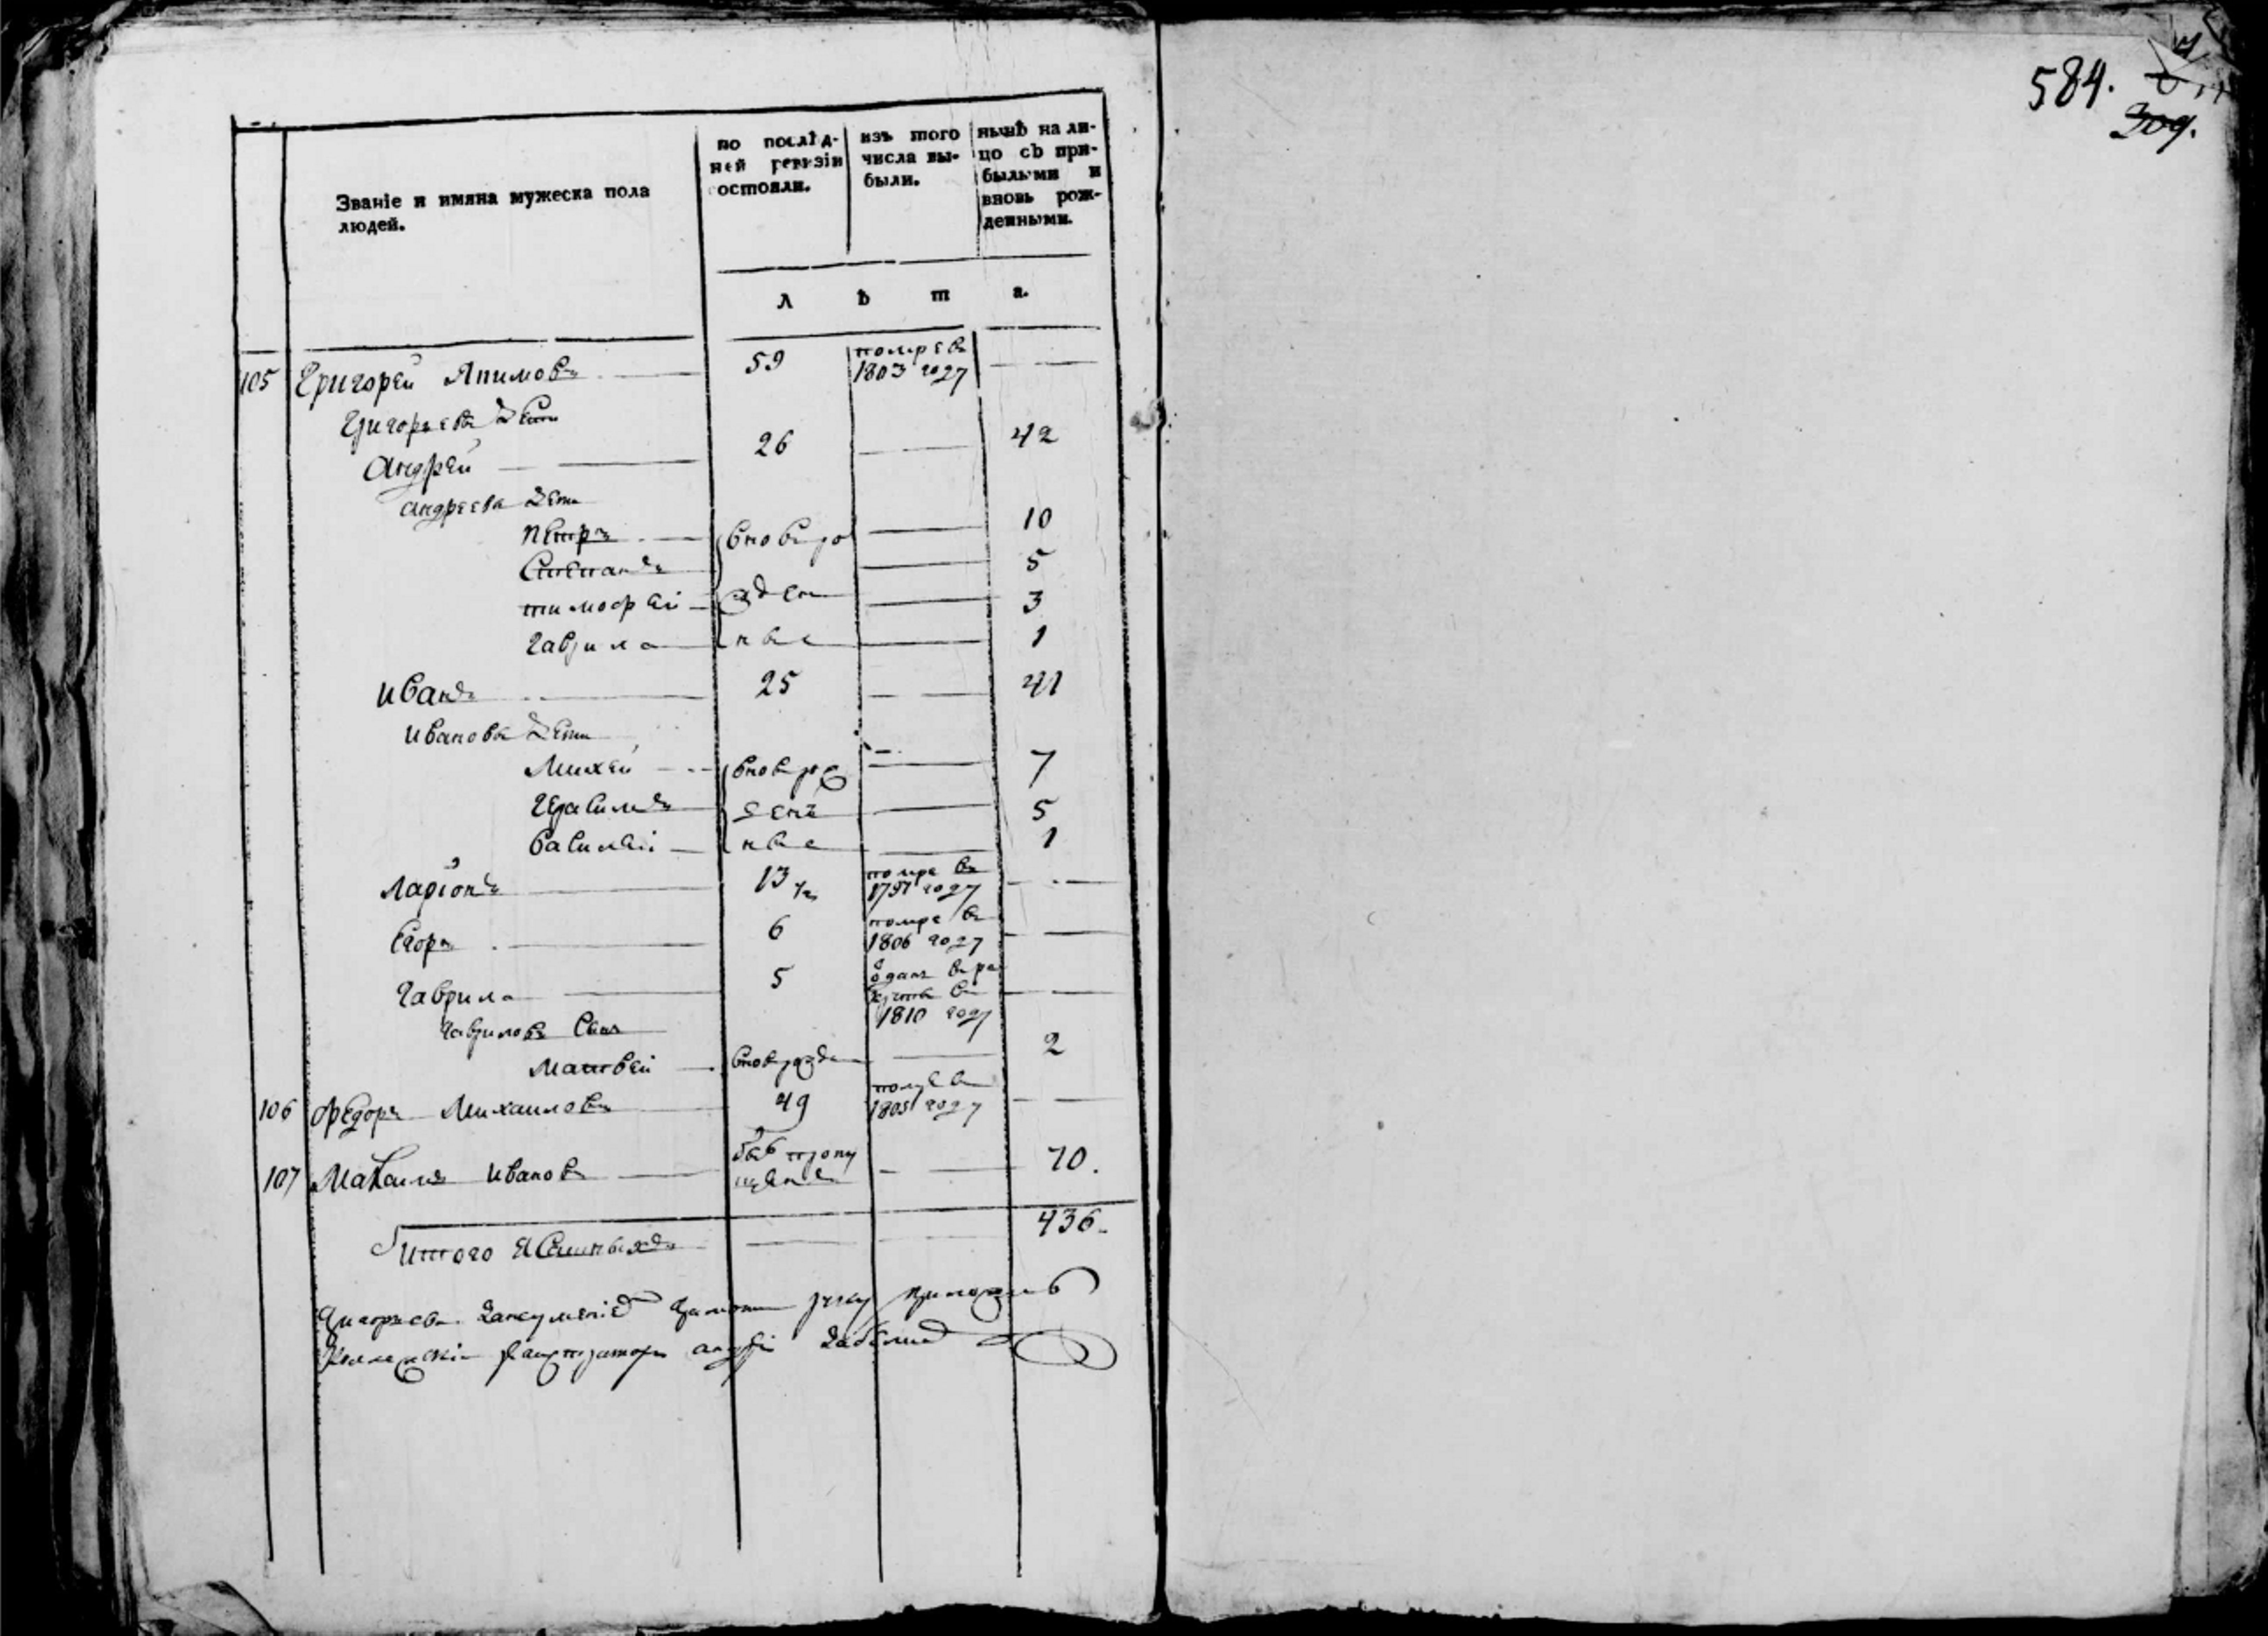 584.
309.
Званіе и имяна мужеска пола
людей.
по послѣд-
ней ревизіи
состояли.
изъ того
числа вы-
были.
нынѣ на ли-
цо съ при-
былыми и
вновь рож-
денными.
л ѣ т а.
105 Григорей Якимовъ 59 помре въ
1803 году
Григорьевы дети
Андрей 26 42
Андреевы дети
Петръ вновь ро 10
Степанъ 5
Тимофей жден 3
Гаврила ные 1
Иванъ 25 41
Ивановы дети
Михей вновь рож 7
Герасимъ дены 5
Василей ные 1
Ларіонъ 13 1/2 помре въ
1797 году
Егоръ 6 помре въ
1806 году
Гаврила 5 отданъ в ре
круты въ
1810 году
Гавриловъ сынъ
Матвей вновь рожд 2
106 Федоръ Михаиловъ 49 помре въ
1805 году
107 Иванов быв пропу
щенъ 70.
Итого 436.
руку приложилъ